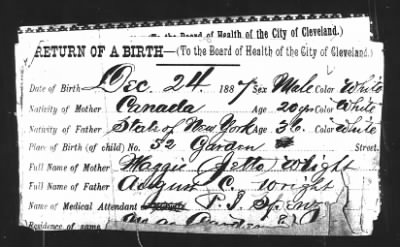 (To the Board of Health of the City of Cleveland.)
RETURN OF A BIRTH—(To the Board of Health of the City of Cleveland.)
Date of Birth Dec. 24. 1887 Sex Male Color White
Nativity of Mother Canada Age 20 yrs Color White
Nativity of Father State of New York Age 36. Color White
Place of Birth (of child) No. 52 Garden Street.
Full Name of Mother Maggie (Jetto) Wright
Full Name of Father August C. Wright
Name of Medical Attendant P. J.
Residence of same Garden